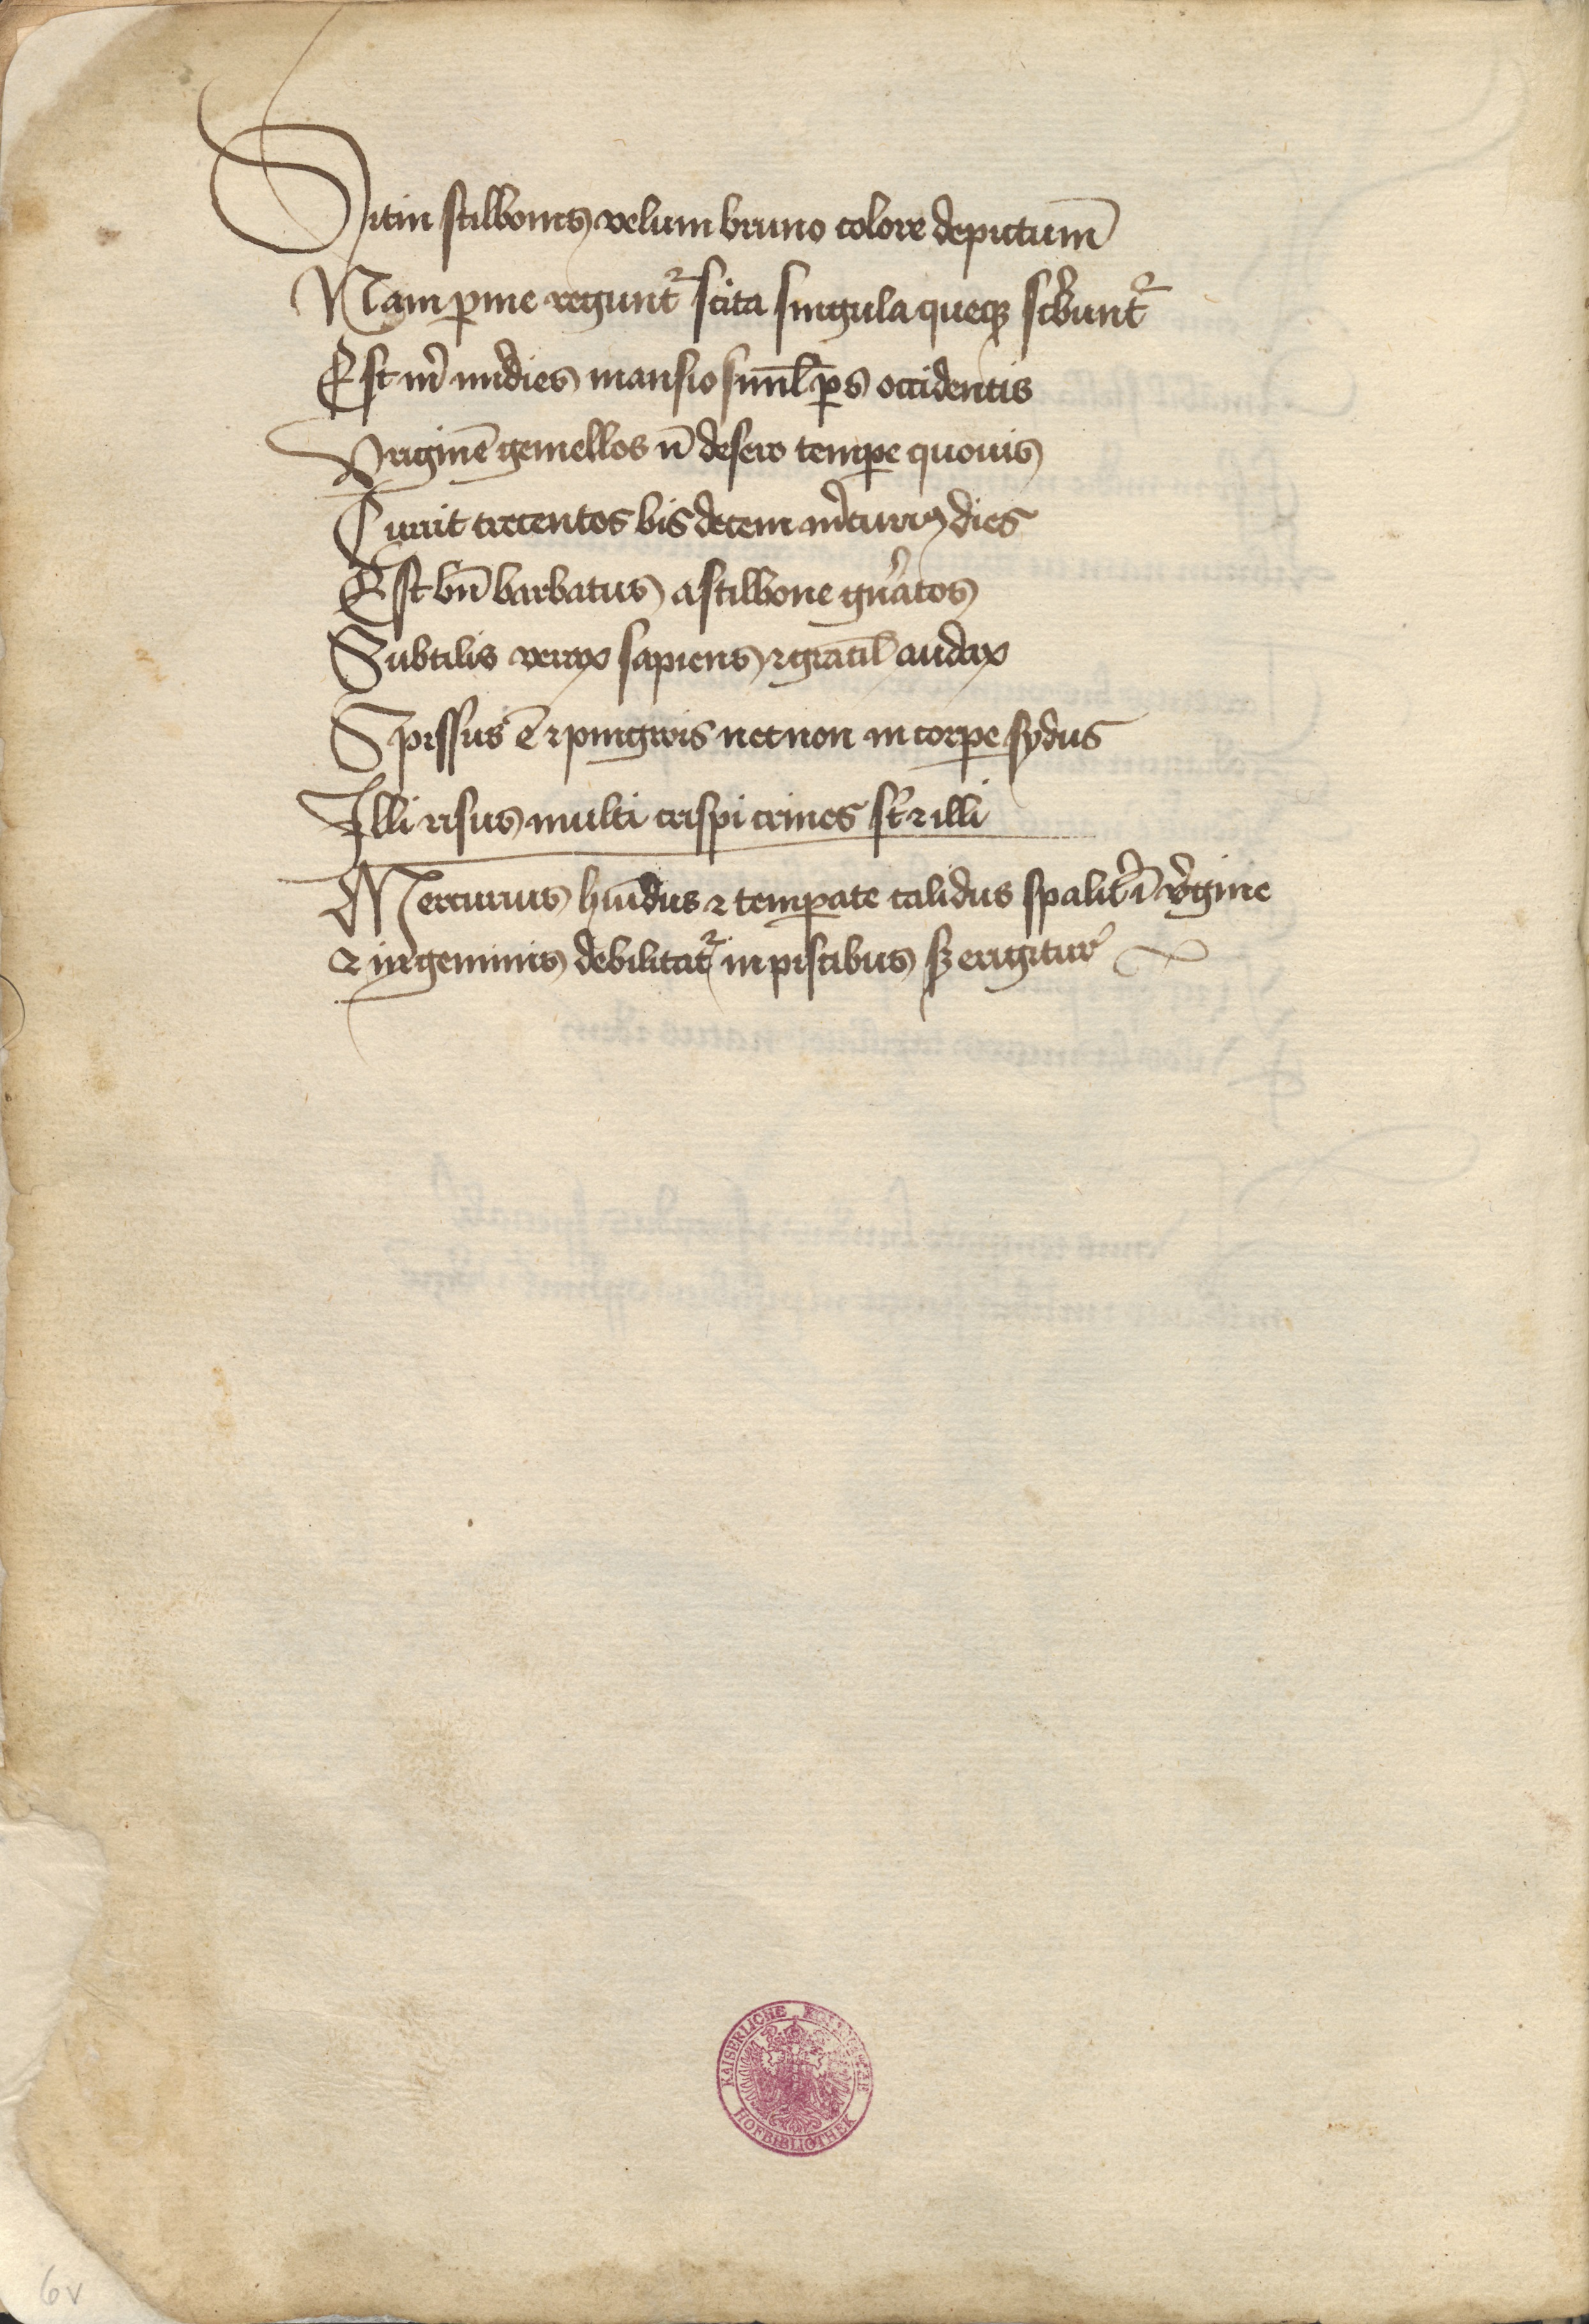 Ditin stilbonis velum bruno colore depictum̄
Nam ꝑ me regunt᷑ scita singula queqꝫ sc̓bunt᷑
Est m̓ m̓idies mansio siml̄ ꝑs occidentis
Virginē gemellos n̄ desero tempe quouis
Currit trecentos bis decem m̓curiꝯ dies
Est bn̄ barbatus a stilbone gn̓atos
Subtilis verax sapiens ⁊ gracil' audax
Spissus ē ⁊ pinguis necnon in corpe sydus
Illi risus multi crispi crines st̄ ⁊ illi
Mercurius hūidus ⁊ temꝑate calidus spalit̓ ī v̓gine
⁊ in geminis debilitat᷑ in piscibus sꝫ erigitur
KAISERLICHE KÖNIGLICHE
HOFBIBLIOTHEK
6v